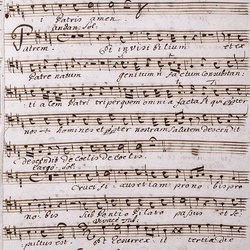 i Patris amen.
Andan: Sol.
Patrem. Et in visibilium et ex
Patre natum genitum n factum consubstan:
ti alem Patri tri per quem omnia facta st qui
nos homines et pter nostram salutem descendit
descendit de coelis de coelis
Largo. Sol.
Cruci, si a us etiam pro no, bis pro
no, bis Sub Pontio Pilato passus et Se:
Vivace Tut:
pultus est. Et resurrex it tertia die